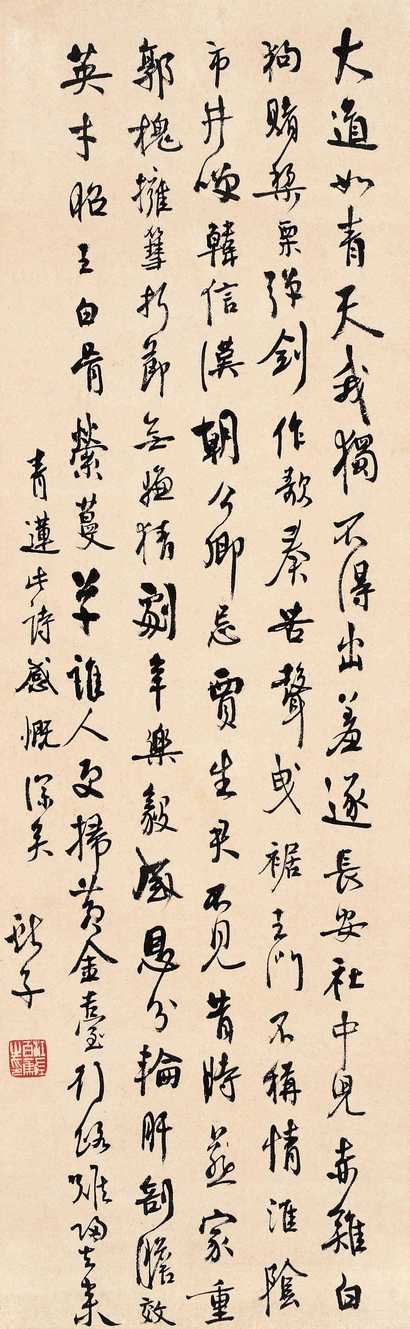 大道如青天我獨不得出羞逐長安社中兒赤雞白
狗賭梨栗彈劍作歌奏苦聲曳裾王門不稱情淮陰
市井咲韓信漢朝公卿忌賈生君不見昔時燕家重
郭槐擁篲折節無嫌猜劇辛樂毅感恩分輪肝剖膽效
英才昭王白骨縈蔓草誰人更掃黃金臺行路難歸去來
青蓮此詩感慨深矣
子